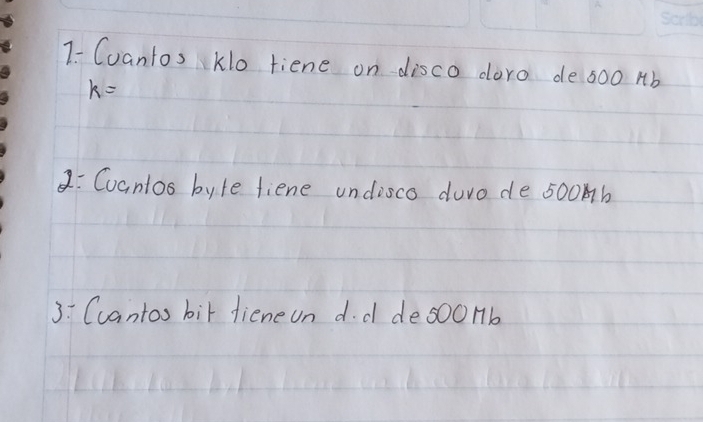 1.- Cuantos klo tiene un disco duro de 500 Mb
k=
2.- Cuantos byte tiene un disco duro de 500 Mb
3.- Cuantos bit tiene un d.d de 500 Mb